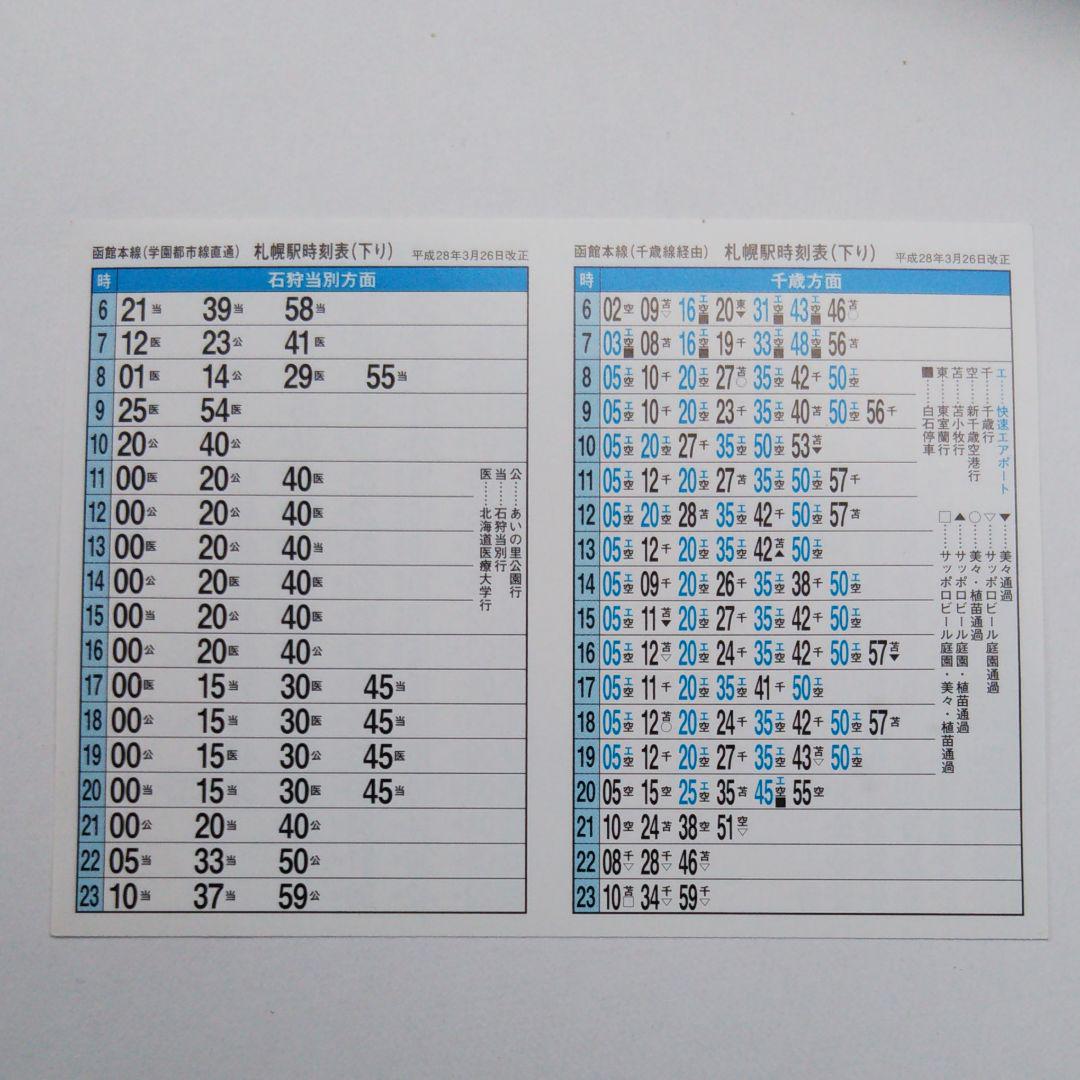 函館本線(学園都市線直通) 札幌駅時刻表(下り) 平成28年3月26日改正
時 石狩当別方面
6 21当 39当 58当
7 12医 23公 41医
8 01医 14公 29医 55当
9 25医 54医
10 20公 40公
11 00医 20公 40医
12 00公 20公 40医
13 00医 20公 40当
14 00公 20医 40医
15 00当 20公 40医
16 00公 20医 40公
17 00医 15当 30医 45当
18 00公 15当 30医 45当
19 00公 15医 30公 45医
20 00当 15当 30医 45当
21 00公 20当 40公
22 05当 33当 50公
23 10当 37当 59公
公……あいの里公園行
当……石狩当別行
医……北海道医療大学行
函館本線(千歳線経由) 札幌駅時刻表(下り) 平成28年3月26日改正
時 千歳方面
6 02空 09苫▽ 16エ空■ 20東▼ 31エ空■ 43エ空■ 46苫○
7 03エ空■ 08苫 16エ空■ 19千 33エ空■ 48エ空■ 56苫
8 05エ空 10千 20エ空 27苫○ 35エ空 42千 50エ空
9 05エ空 10千 20エ空 23千 35エ空 40苫 50エ空 56千
10 05エ空 20エ空 27千 35エ空 50エ空 53苫▼
11 05エ空 12千 20エ空 27苫 35エ空 50エ空 57千
12 05エ空 20エ空 28苫 35エ空 42千 50エ空 57苫
13 05エ空 12千 20エ空 35エ空 42苫▲ 50エ空
14 05エ空 09千 20エ空 26千 35エ空 38千 50エ空
15 05エ空 11苫▼ 20エ空 27千 35エ空 42千 50エ空
16 05エ空 12苫▽ 20エ空 24千 35エ空 42千 50エ空 57苫▼
17 05エ空 11千 20エ空 35エ空 41千 50エ空
18 05エ空 12苫○ 20エ空 24千 35エ空 42千 50エ空 57苫
19 05エ空 12千 20エ空 27千 35エ空 43苫▽ 50エ空
20 05空 15空 25エ空 35苫 45エ空■ 55空
21 10空 24苫 38空 51空▽
22 08千▽ 28千▽ 46苫▽
23 10苫□ 34千▽ 59千▽
エ……快速エアポート
千……千歳行
空……新千歳空港行
苫……苫小牧行
東……東室蘭行
■……白石停車
▼……美々通過
▽……サッポロビール庭園通過
○……美々・植苗通過
▲……サッポロビール庭園・植苗通過
□……サッポロビール庭園・美々・植苗通過